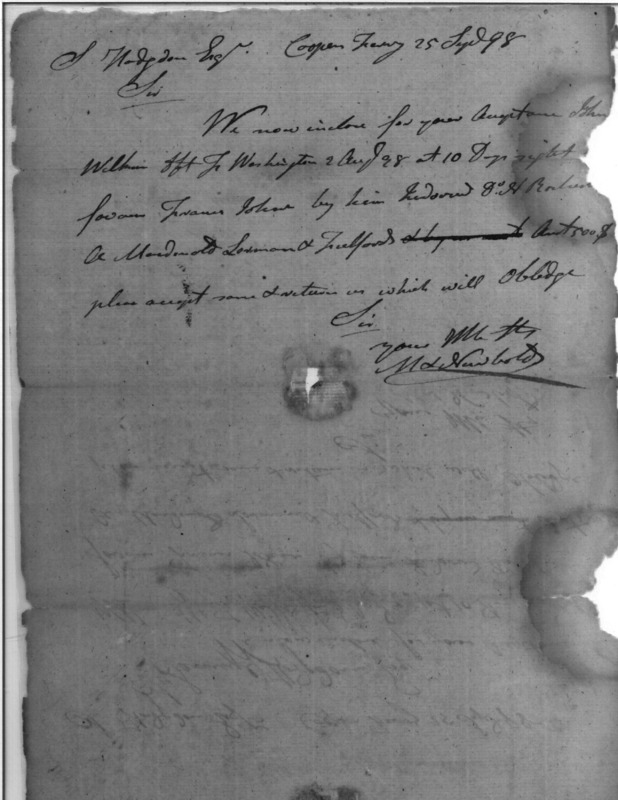 S Hodgdon Esqr. Coopers Ferry 25 Sept 98
Sir
We now inclose for your Acceptance John
Wilkins dft Ft Washington 2 Augt 98 at 10 Days sight
favour Francis Johns by him Indorsed Do
& by us Amt 500$
please accept same & return us which will Obledge
Sir
your Hble Sts
M & Newbold